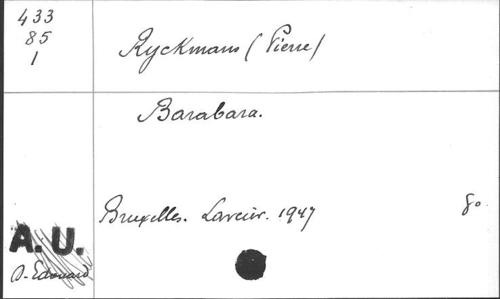 433
85
1
Ryckmans (Pierre)
Barabara.
Bruxelles. Larcier. 1947
8o
A.U.
D. Edouard